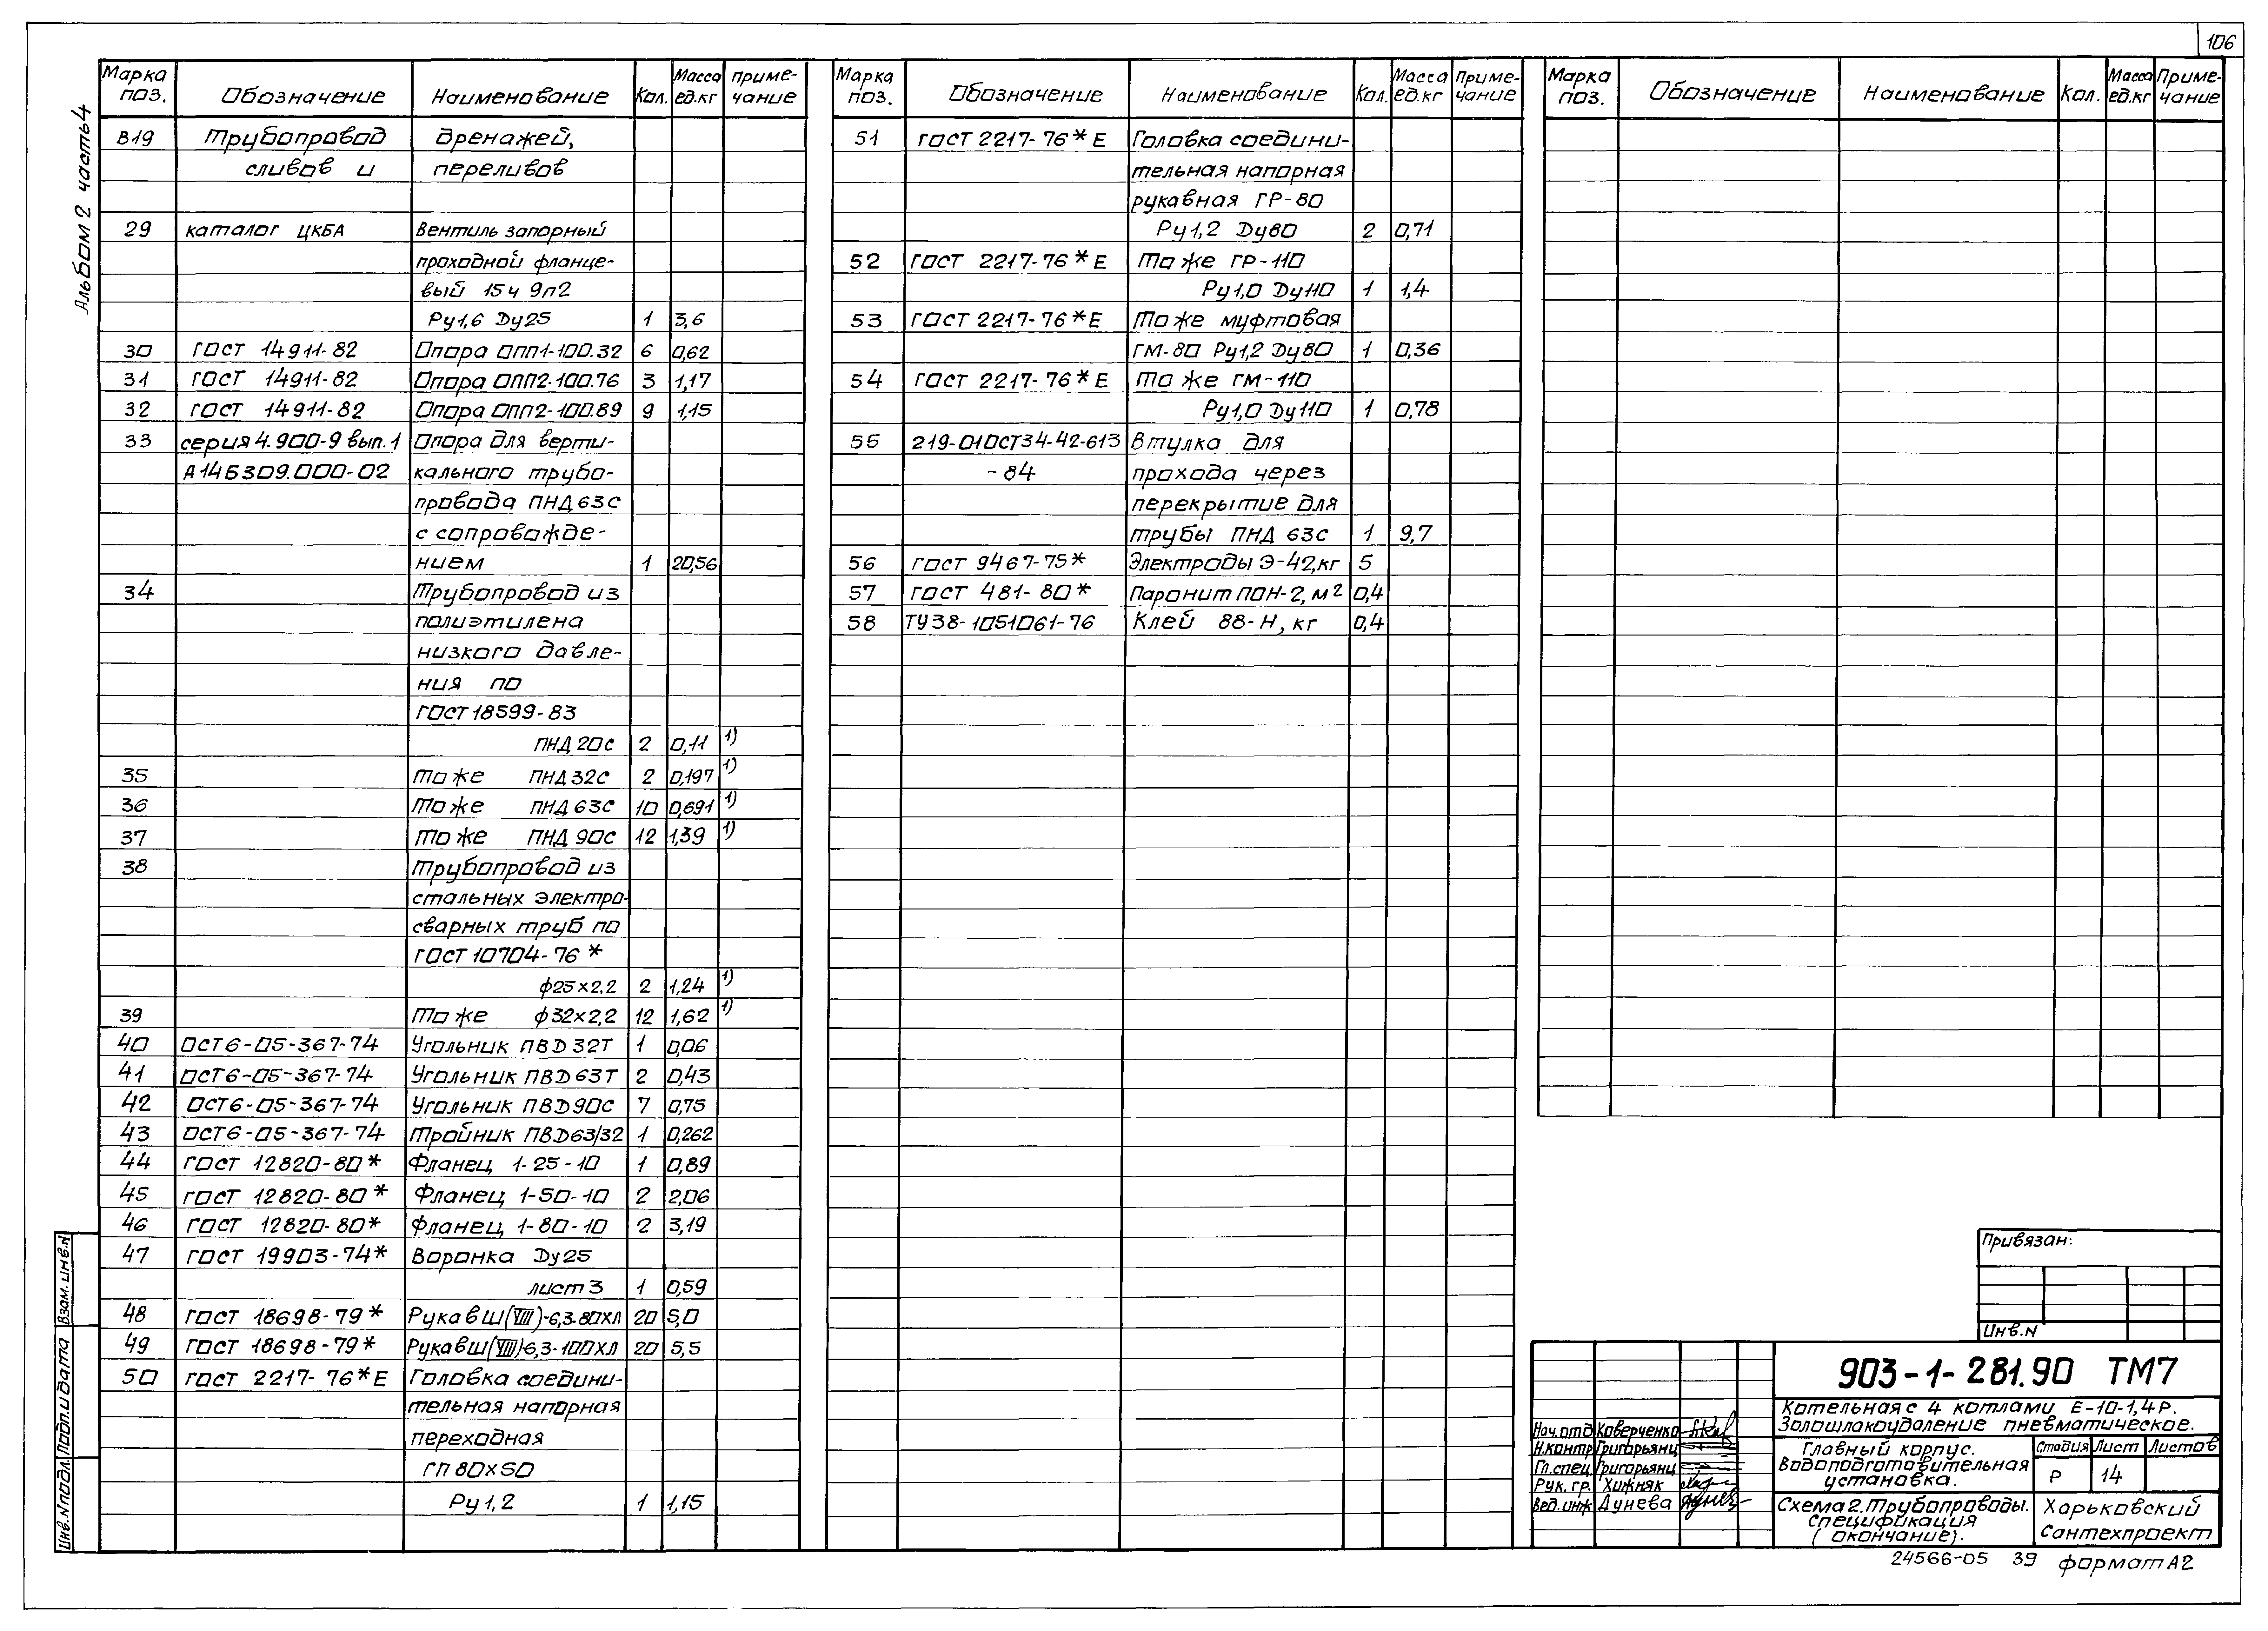 106
Альбом 2 часть 4
Марка поз. Обозначение Наименование Кол. Масса ед.кг Приме-чание
В19 Трубопровод дренажей,
сливов и переливов
29 каталог ЦКБА Вентиль запорный
проходной фланце-
вый 15ч 9п2
Ру1,6 Ду25 1 3,6
30 ГОСТ 14911-82 Опора ОПП1-100.32 6 0,62
31 ГОСТ 14911-82 Опора ОПП2-100.76 3 1,17
32 ГОСТ 14911-82 Опора ОПП2-100.89 9 1,15
33 серия 4.900-9 вып.1 Опора для верти-
А14Б309.000-02 кального трубо-
провода ПНД 63С
с сопровожде-
нием 1 20,56
34 Трубопровод из
полиэтилена
низкого давле-
ния по
ГОСТ 18599-83
ПНД 20С 2 0,11 1)
35 То же ПНД 32С 2 0,197 1)
36 То же ПНД 63С 10 0,691 1)
37 То же ПНД 90С 12 1,39 1)
38 Трубопровод из
стальных электро-
сварных труб по
ГОСТ 10704-76*
ф25×2,2 2 1,24 1)
39 То же ф32×2,2 12 1,62 1)
40 ОСТ6-05-367-74 Угольник ПВД 32Т 1 0,06
41 ОСТ6-05-367-74 Угольник ПВД 63Т 2 0,43
42 ОСТ6-05-367-74 Угольник ПВД 90С 7 0,75
43 ОСТ6-05-367-74 Тройник ПВД 63/32 1 0,262
44 ГОСТ 12820-80* Фланец 1-25-10 1 0,89
45 ГОСТ 12820-80* Фланец 1-50-10 2 2,06
46 ГОСТ 12820-80* Фланец 1-80-10 2 3,19
47 ГОСТ 19903-74* Воронка Ду25
лист 3 1 0,59
48 ГОСТ 18698-79* Рукав Ш(VIII)-6,3-80ХЛ 20 5,0
49 ГОСТ 18698-79* Рукав Ш(VIII)-6,3-100ХЛ 20 5,5
50 ГОСТ 2217-76*Е Головка соедини-
тельная напорная
переходная
ГП 80×50
Ру 1,2 1 1,15
Марка поз. Обозначение Наименование Кол. Масса ед.кг Приме-чание
51 ГОСТ 2217-76*Е Головка соедини-
тельная напорная
рукавная ГР-80
Ру1,2 Ду80 2 0,71
52 ГОСТ 2217-76*Е То же ГР-110
Ру1,0 Ду110 1 1,4
53 ГОСТ 2217-76*Е То же муфтовая
ГМ-80 Ру1,2 Ду80 1 0,36
54 ГОСТ 2217-76*Е То же ГМ-110
Ру1,0 Ду110 1 0,78
55 219-01ОСТ34-42-613 Втулка для
-84 прохода через
перекрытие для
трубы ПНД 63С 1 9,7
56 ГОСТ 9467-75* Электроды Э-42, кг 5
57 ГОСТ 481-80* Паронит ПОН-2, м2 0,4
58 ТУ38-1051061-76 Клей 88-Н, кг 0,4
Марка поз. Обозначение Наименование Кол. Масса ед.кг Приме-чание
Привязан:
Инв.N
903-1-281.90 ТМ7
Котельная с 4 котлами Е-10-1,4Р.
Золошлакоудаление пневматическое.
Нач.отд Коверченко
Н.контр Григорьянц
Гл.спец Григорьянц
Рук.гр. Хижняк
Вед.инж Дунева
Главный корпус.
Водоподготовительная
установка.
Стадия Лист Листов
Р 14
Схема 2. Трубопроводы.
Спецификация
(окончание).
Харьковский
Сантехпроект
24566-05 39 формат А2
Взам. инв.N
Подп. и дата
Инв. N подл.